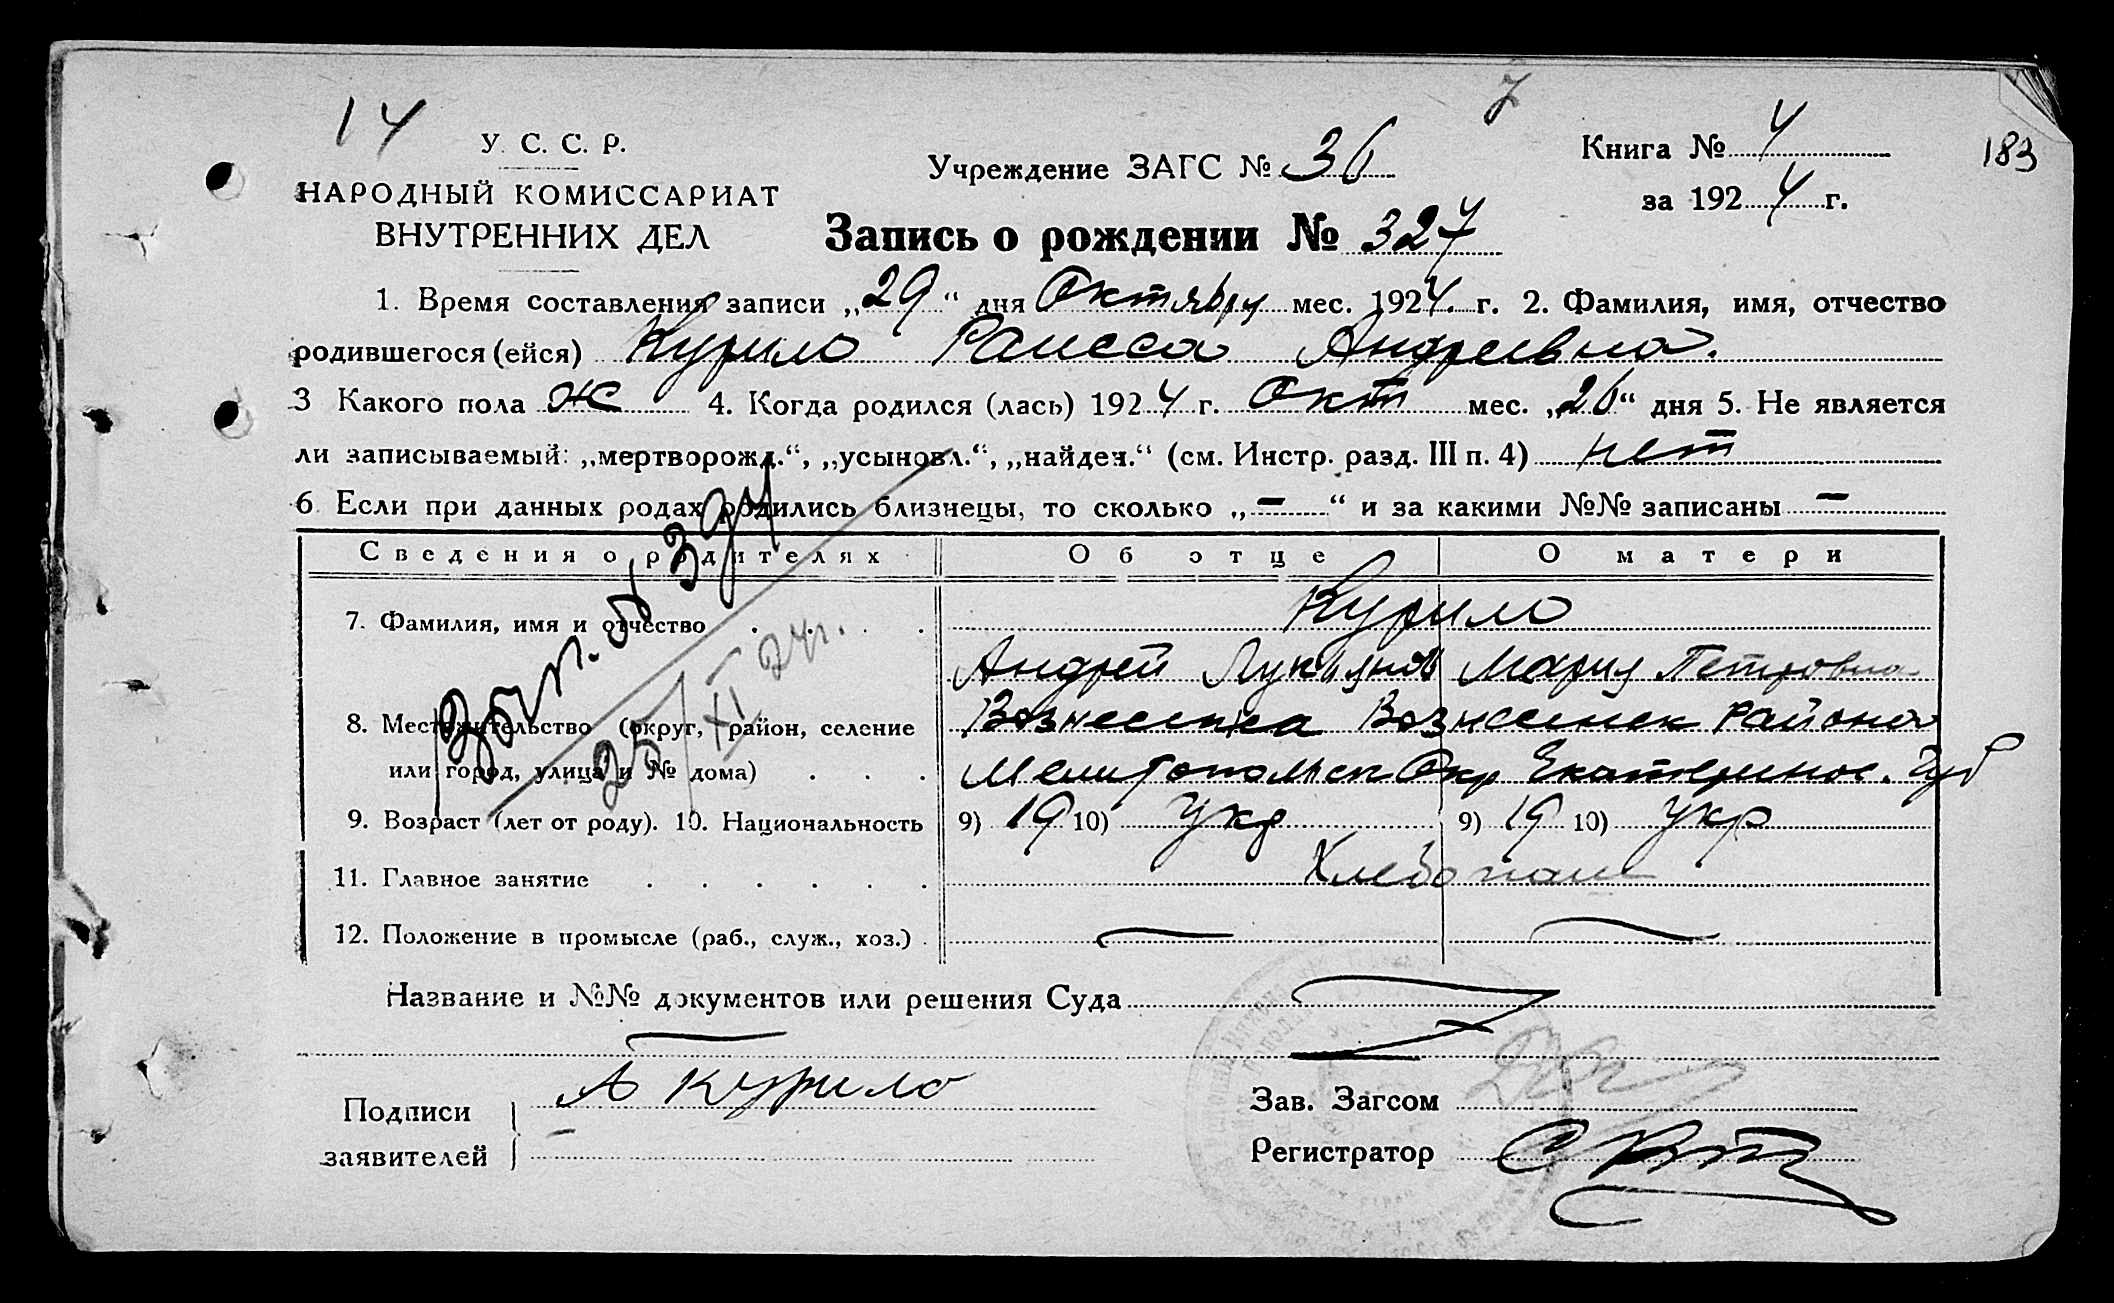 14
У. С. С. Р.
НАРОДНЫЙ КОМИССАРИАТ
ВНУТРЕННИХ ДЕЛ
Учреждение ЗАГС № 36
Книга № 4
за 1924 г.
183
Запись о рождении № 327
1. Время составления записи „29“ дня Октября мес. 1924 г. 2. Фамилия, имя, отчество
родившегося (ейся) Курило Раисса Андреевна.
3 Какого пола ж 4. Когда родился (лась) 1924 г. Окт мес. „26“ дня 5. Не является
ли записываемый: „мертворожд.“, „усыновл.“, „найден.“ (см. Инстр. разд. III п. 4) нет
6 Если при данных родах родились близнецы, то сколько „ – “ и за какими №№ записаны –
Сведения о родителях Об отце О матери
7. Фамилия, имя и отчество Курило
Андрей Лукьянов Мария Петровна
8. Местожительство (округ, район, селение Вознесенка Вознесенск района
или город, улица и № дома) Мелитопольск Окр Екатеринос. Губ
9. Возраст (лет от роду). 10. Национальность 9) 19 10) Укр 9) 19 10) Укр
11. Главное занятие Хлебопаш
12. Положение в промысле (раб., служ., хоз.) — —
25/XI 24 г.
Название и №№ документов или решения Суда
Подписи
заявителей
А Курило
Зав. Загсом
Регистратор